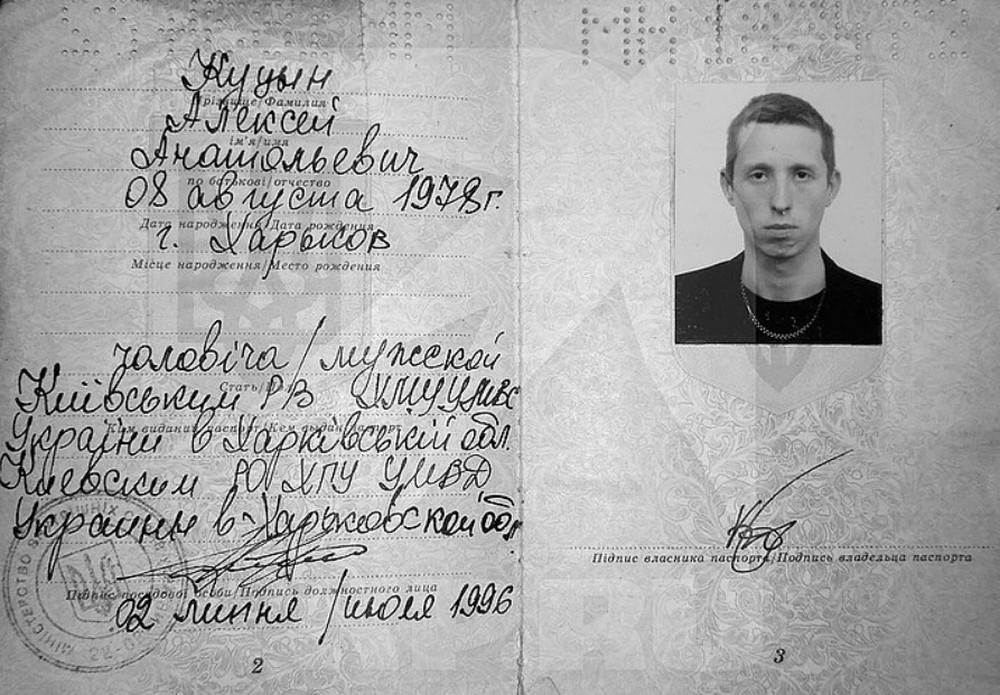 Куцын
Прізвище/Фамилия
Алексей
ім'я/имя
Анатольевич
по батькові/отчество
08 августа 1978г.
Дата народження/Дата рождения
г. Харьков
Місце народження/Место рождения
чоловіча/мужской
Стать/Пол
Київським РВ ХМУ УМВС
Ким виданий паспорт/Кем выдан паспорт
України в Харківській обл.
Киевским РО ХГУ УМВД
Украины в Харьковской обл
Підпис посадової особи/Подпись должностного лица
02 липня/июля 1996
2
Підпис власника паспорта/Подпись владельца паспорта
3